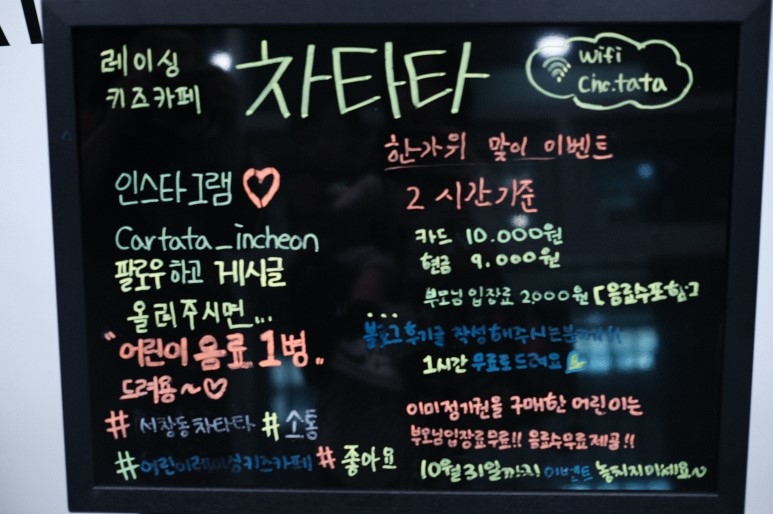 레이싱
키즈카페
차타타
wifi
Cha.tata
인스타그램
Cartata_incheon
팔로우하고 게시글
올려주시면...
"어린이 음료 1병"
드려용~♡
# 서창동차타타 # 소통
#어린이레이싱키즈카페 # 좋아요
한가위 맞이 이벤트
2 시간기준
카드 10.000원
현금 9.000원
부모님 입장료 2000원 [음료수포함]
...
블로그후기글 작성해주시는분께
1시간 무료로드려요
이미정기권을 구매한 어린이는
부모님입장료무료!! 음료수무료제공!!
10월31일까지 이벤트 놓치지마세요~